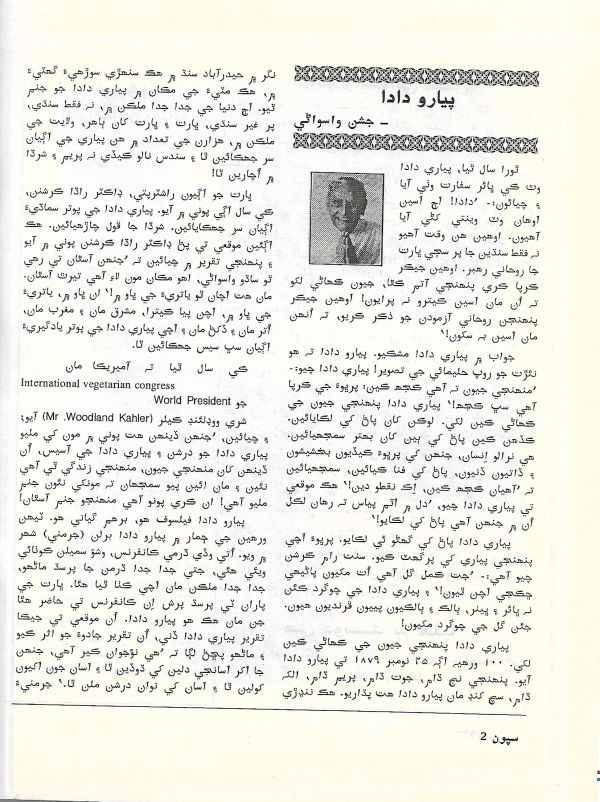 پيارو دادا
– جشن واسواڻي
ٿورا سال ٿيا، پياري دادا
وٽ ڪي ڀائر سفارت وٺي آيا
۽ چيائون:- ’دادا! اڄ اسين
اوهان وٽ وينتي کڻي آيا
آهيون. اوهين هن وقت آهيو
نہ فقط سنڌين جا پر سڄي ڀارت
جا روحاني رهبر. اوهين جيڪر
ڪرپا ڪري پنهنجي آتم ڪٿا، جيون ڪهاڻي لکو
تہ اُن مان اسين ڪيترو نہ پرايون! اوهين جيڪر
پنهنجن روحاني آزمودن جو ذڪر ڪريو، تہ اُنهن
مان اسين بہ سکون!‘
جواب ۾ پياري دادا مشڪيو. پيارو دادا تہ هو
نئڙت جو روپ حليمائي جي تصوير! پياري دادا چيو:-
’منهنجي جيون تہ آهي ڪجهہ ڪين؛ پرڀوءَ جي ڪرپا
آهي سڀ ڪجهہ!‘ پياري دادا پنهنجي جيون جي
ڪهاڻي ڪين لکي. لوڪن کان پاڻ کي لڪايائين.
ڪڏهن ڪين پاڻ کي ٻين کان بهتر سمجهيائين.
هي نرالو اِنسان، جنهن کي پرڀوءَ ڪيڏيون بخشيشون
۽ ڏاتيون ڏنيون، پاڻ کي فنا ڪيائين، سمجهيائين
تہ ’آهيان ڪجهہ ڪين، اِڪ نقطو دين!‘ هڪ موقعي
تي پياري دادا چيو، ’دل ۾ اٿم پياس تہ رهان لڪل
اُن ۾ جنهن آهي پاڻ کي لڪايو!‘
پياري دادا پاڻ کي گهڻو ئي لڪايو. پرڀوءَ اچي
پنهنجي پياري کي پرگهٽ ڪيو. سنت رام ڪرشن
چيو آهي:- ’جت ڪمل گل آهي اُن مکيون پاڻيهي
چڪجي اچن ٿيون!‘ ۽ پياري دادا جي چوگرد ڪئن
نہ ڀائر ۽ ڀينر، ٻالڪ ۽ ٻالڪيون پيون ڦرنديون هيون.
جئن گل جي چوگرد مکيون!
پياري دادا پنهنجي جيون جي ڪهاڻي ڪين
لکي. ۱۰۰ ورهيہ اڳہ ۲۵ نومبر ۱۸۷۹ تي پيارو دادا
آيو. پنهنجي نج ڌام، جوت ڌام، پريم ڌام، الکہ
ڌام، سچ کنڊ مان پيارو دادا هت پڌاريو. هڪ ننڍڙي
نگر ۾ حيدرآباد سنڌ ۾ هڪ سنهڙي سوڙهيءَ گهٽيءَ
۾، هڪ مٽيءَ جي مڪان ۾ پياري دادا جو جنم
ٿيو. اڄ دنيا جي جدا جدا ملڪن ۾، نہ فقط سنڌي،
پر غير سنڌي، ڀارت ۽ ڀارت کان ٻاهر، ولايت جي
ملڪن ۾، هزارن جي تعداد ۾ هن پياري جي اڳيان
سر جهڪائين ٿا ۽ سندس نالو ڪيڏي نہ پريم ۽ شرڌا
۾ اُچارين ٿا!
ڀارت جو اڳيون راشٽرپتي، ڊاڪٽر راڌا ڪرشنن،
کي سال اڳي پوني ۾ آيو. پياري دادا جي پوتر سماڌيءَ
اڳيان سر جهڪايائين. شرڌا جا ڦول چاڙهيائين. هڪ
اڳئين موقعي تي پڻ ڊاڪٽر راڌا ڪرشنن پوني ۾ آيو
۽ پنهنجي تقرير ۾ چيائين تہ ’جنهن آسٿان تي رهي
ٿو ساڌو واسواڻي، اهو مڪان مون لاءِ آهي تيرٿ آسٿان.
مان هت اچان ٿو ياتريءَ جي ڀاو ۾!‘ ان ڀاو ۾، ياتريءَ
جي ڀاو ۾، اچن پيا ڪيترا، مشرق مان ۽ مغرب مان،
اُتر مان ۽ ڏکڻ مان ۽ اچي پياري دادا جي پوتر يادگيريءَ
اڳيان سڀ سيس جهڪائين ٿا.
ڪي سال ٿيا تہ آميريڪا مان
International vegetarian congress
جو World President
شري ووڊلئنڊ ڪيلر (Mr .Woodland Kahler) آيو؛
۽ چيائين، ’جنهن ڏينهن هت پوني ۾ مون کي مليو
پياري دادا جو درشن ۽ پياري دادا جي آسيس، اُن
ڏينهن کان منهنجي جيون، منهنجي زندگي ٿي آهي
نئين ۽ مان ائين پيو سمجهان تہ مونکي نئون جنم
مليو آهي! ان ڪري پونو آهي منهنجو جنم آسٿان!
پيارو دادا فيلسوف هو، برهم گياني هو. ٽيهن
ورهين جي ڄمار ۾ پيارو دادا برلن (جرمني) شهر
۾ ويو. اُتي وڏي ڌرمي ڪانفرنس، وشو سميلن ڪوٺائي
ويئي هئي، جتي جدا جدا ڌرمن جا پرسڌ ماڻهو،
جدا جدا ملڪن مان اچي گڏ ٿيا هئا. ڀارت جي
پاران ٽي پرسڌ پرش اِن ڪانفرنس تي حاضر هئا
جن مان هڪ هو پيارو دادا. اُن موقعي تي جيڪا
تقرير پياري دادا ڏني، اُن تقرير جادوءَ جو اثر ڪيو
۽ ماڻهو پڇڻ لڳا تہ ’هي نؤجوان ڪير آهي، جنهن
جا اکر اسانجي دلين کي ڌوڏين ٿا ۽ اسان جون اکيون
کولين ٿا ۽ اسان کي نوان درشن ملن ٿا.‘ جرمنيءَ
سپون 2